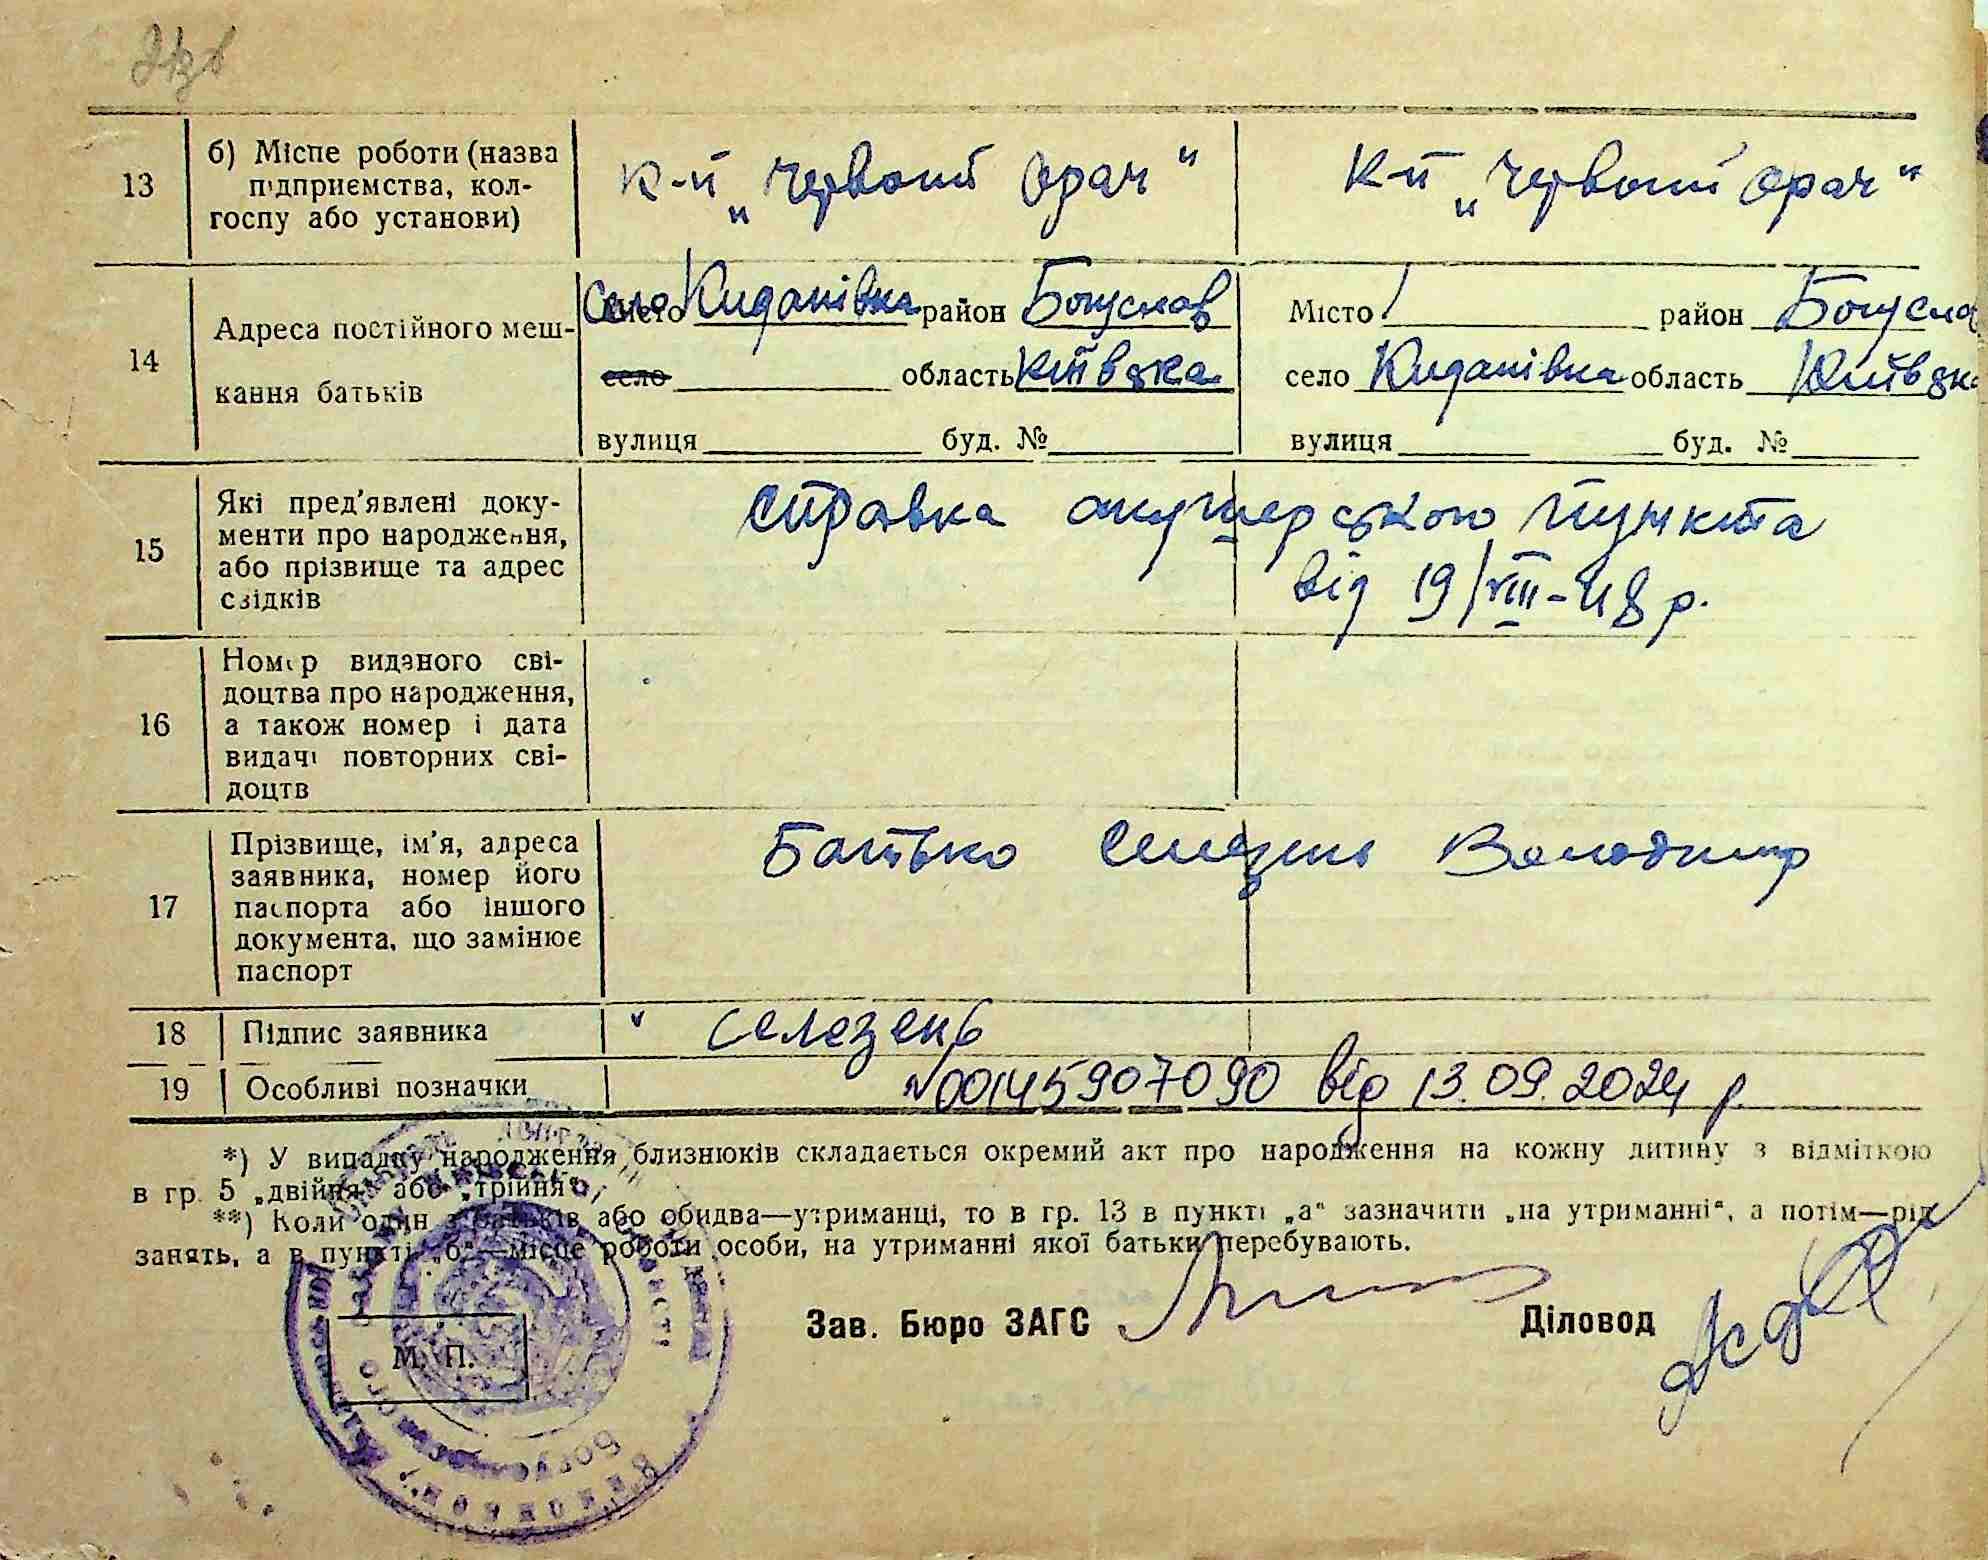 13
б) Місце роботи (назва
підприємства, кол-
госпу або установи)
к-п „Червоний Орач"
К-п „Червоний Орач"
14
Адреса постійного меш-
кання батьків
Село Киданівка район Богуслав
село область Київська
вулиця буд. №
Місто район Богуслав
село Киданівка область Київська
вулиця буд. №
15
Які пред'явлені доку-
менти про народження,
або прізвище та адрес
свідків
справка акушерського пункта
від 19/VIII-48 р.
16
Номер виданого сві-
доцтва про народження,
а також номер і дата
видачі повторних сві-
доцтв
17
Прізвище, ім'я, адреса
заявника, номер його
паспорта або іншого
документа, що замінює
паспорт
Батько Селезень Володимир
18
Підпис заявника
Селезень
19
Особливі позначки
№00145907090 від 13.09.2024 р.
*) У випадку народження близнюків складається окремий акт про народження на кожну дитину з відміткою
в гр. 5 „двійня" або „трійня".
**) Коли один з батьків або обидва—утриманці, то в гр. 13 в пункті „а" зазначити „на утриманні", а потім—рід
занять, а в пункті „б"—місце роботи особи, на утриманні якої батьки перебувають.
Зав. Бюро ЗАГС
Діловод
М. П.